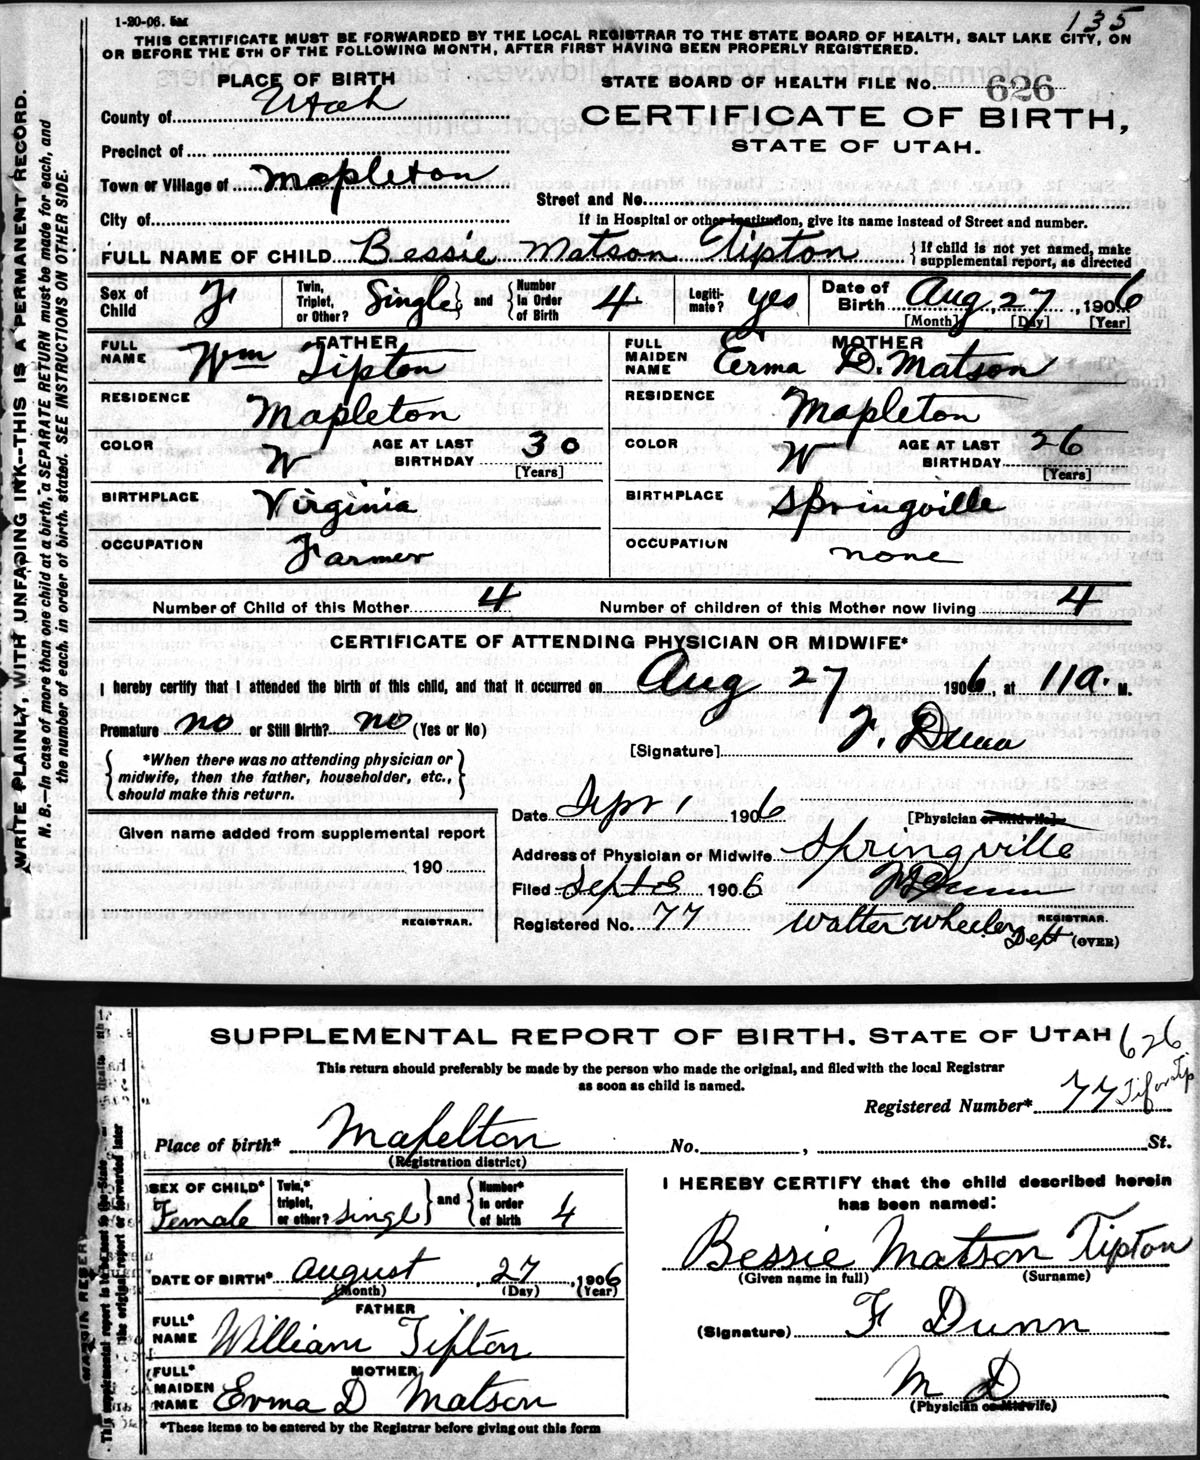 1-20-06. 5M
135
THIS CERTIFICATE MUST BE FORWARDED BY THE LOCAL REGISTRAR TO THE STATE BOARD OF HEALTH, SALT LAKE CITY, ON
OR BEFORE THE 5TH OF THE FOLLOWING MONTH, AFTER FIRST HAVING BEEN PROPERLY REGISTERED.
WRITE PLAINLY, WITH UNFADING INK--THIS IS A PERMANENT RECORD.
N. B.—In case of more than one child at a birth, a SEPARATE RETURN must be made for each, and
the number of each, in order of birth, stated. SEE INSTRUCTIONS ON OTHER SIDE.
PLACE OF BIRTH
STATE BOARD OF HEALTH FILE No. 626
County of Utah
CERTIFICATE OF BIRTH,
STATE OF UTAH.
Precinct of
Town or Village of Mapleton
Street and No.
City of
If in Hospital or other Institution, give its name instead of Street and number.
FULL NAME OF CHILD Bessie Matson Tipton
If child is not yet named, make
supplemental report, as directed
Sex of Child F
Twin, Triplet, or Other? Single and Number in Order of Birth 4
Legitimate? yes
Date of Birth Aug. 27, 1906
[Month] [Day] [Year]
FATHER
MOTHER
FULL NAME Wm Tipton
FULL MAIDEN NAME Erma D. Matson
RESIDENCE Mapleton
RESIDENCE Mapleton
COLOR W AGE AT LAST BIRTHDAY 30 [Years]
COLOR W AGE AT LAST BIRTHDAY 26 [Years]
BIRTHPLACE Virginia
BIRTHPLACE Springville
OCCUPATION Farmer
OCCUPATION none
Number of Child of this Mother 4 Number of children of this Mother now living 4
CERTIFICATE OF ATTENDING PHYSICIAN OR MIDWIFE*
I hereby certify that I attended the birth of this child, and that it occurred on Aug 27 1906, at 11 a. M.
Premature no or Still Birth? no (Yes or No)
[Signature] F. Dunn
*When there was no attending physician or
midwife, then the father, householder, etc.,
should make this return.
Date Sept 1 1906
[Physician or Midwife]
Given name added from supplemental report
190
REGISTRAR.
Address of Physician or Midwife Springville
Filed Sept 8 1906
Registered No. 77
Walter Wheeler REGISTRAR.
Dept (OVER)
SUPPLEMENTAL REPORT OF BIRTH, STATE OF UTAH 626
This return should preferably be made by the person who made the original, and filed with the local Registrar
as soon as child is named.
Registered Number* 77 Tif or Tip
Place of birth* Mapelton No. , St.
(Registration district)
SEX OF CHILD* Female
Twin,* triplet, or other? Singl and Number* in order of birth 4
I HEREBY CERTIFY that the child described herein
has been named:
Bessie Matson Tipton
(Given name in full) (Surname)
DATE OF BIRTH* August, 27, 1906
(Month) (Day) (Year)
FATHER
FULL* NAME William Tipton
(Signature) F Dunn
MOTHER
FULL* MAIDEN NAME Erma D Matson
M D
(Physician or Midwife)
*These items to be entered by the Registrar before giving out this form
MARGIN RESER
This supplemental report is to be sent to the State
the original report or forwarded later